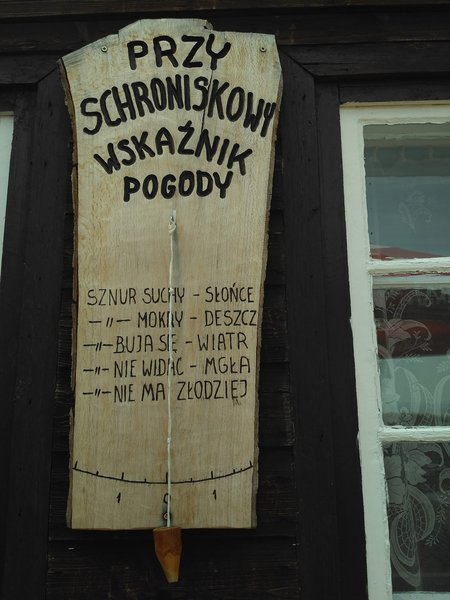 PRZY
SCHRONISKOWY
WSKAŹNIK
POGODY
SZNUR SUCHY - SŁOŃCE
-〃- MOKRY - DESZCZ
-〃- BUJA SIĘ - WIATR
-〃- NIE WIDAĆ - MGŁA
-〃- NIE MA ZŁODZIEJ
1 0 1